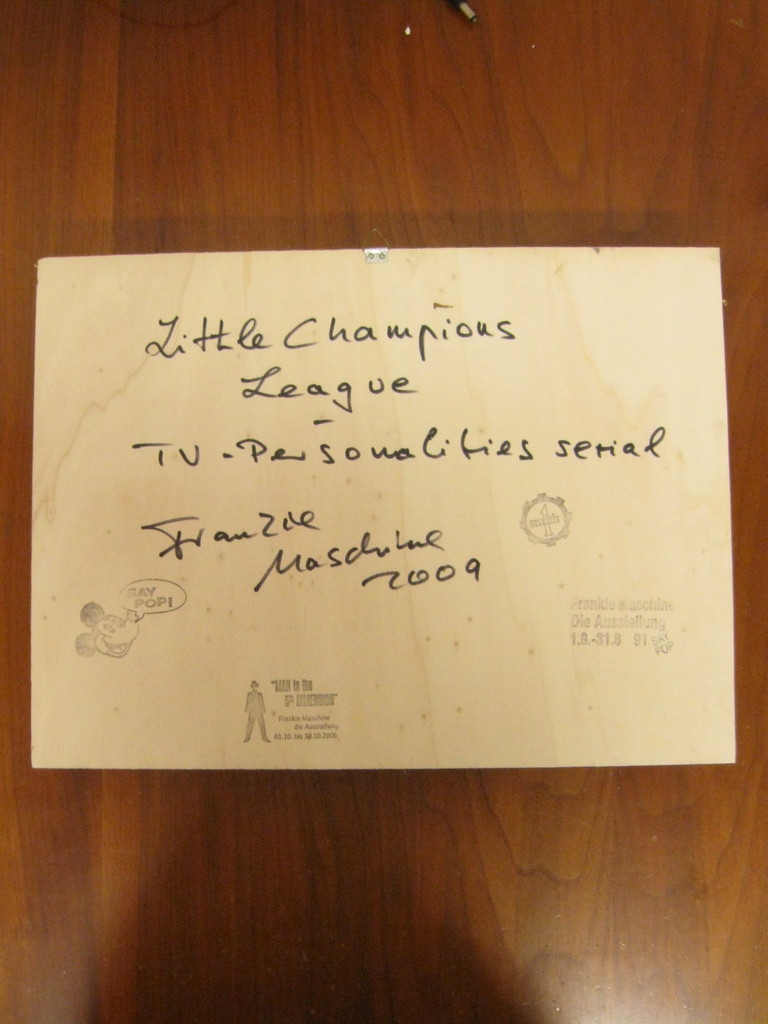 Little Champions
League
-
TV-Personalities serial
Frankie
Maschine
2009
smith
SAY
POP!
Frankie Maschine
Die Ausstellung
1.8.-31.8 91
SAY
POP
"MAN in the
5th DIMENSION"
Frankie Maschine
die Ausstellung
01.10. bis 30.10.2006